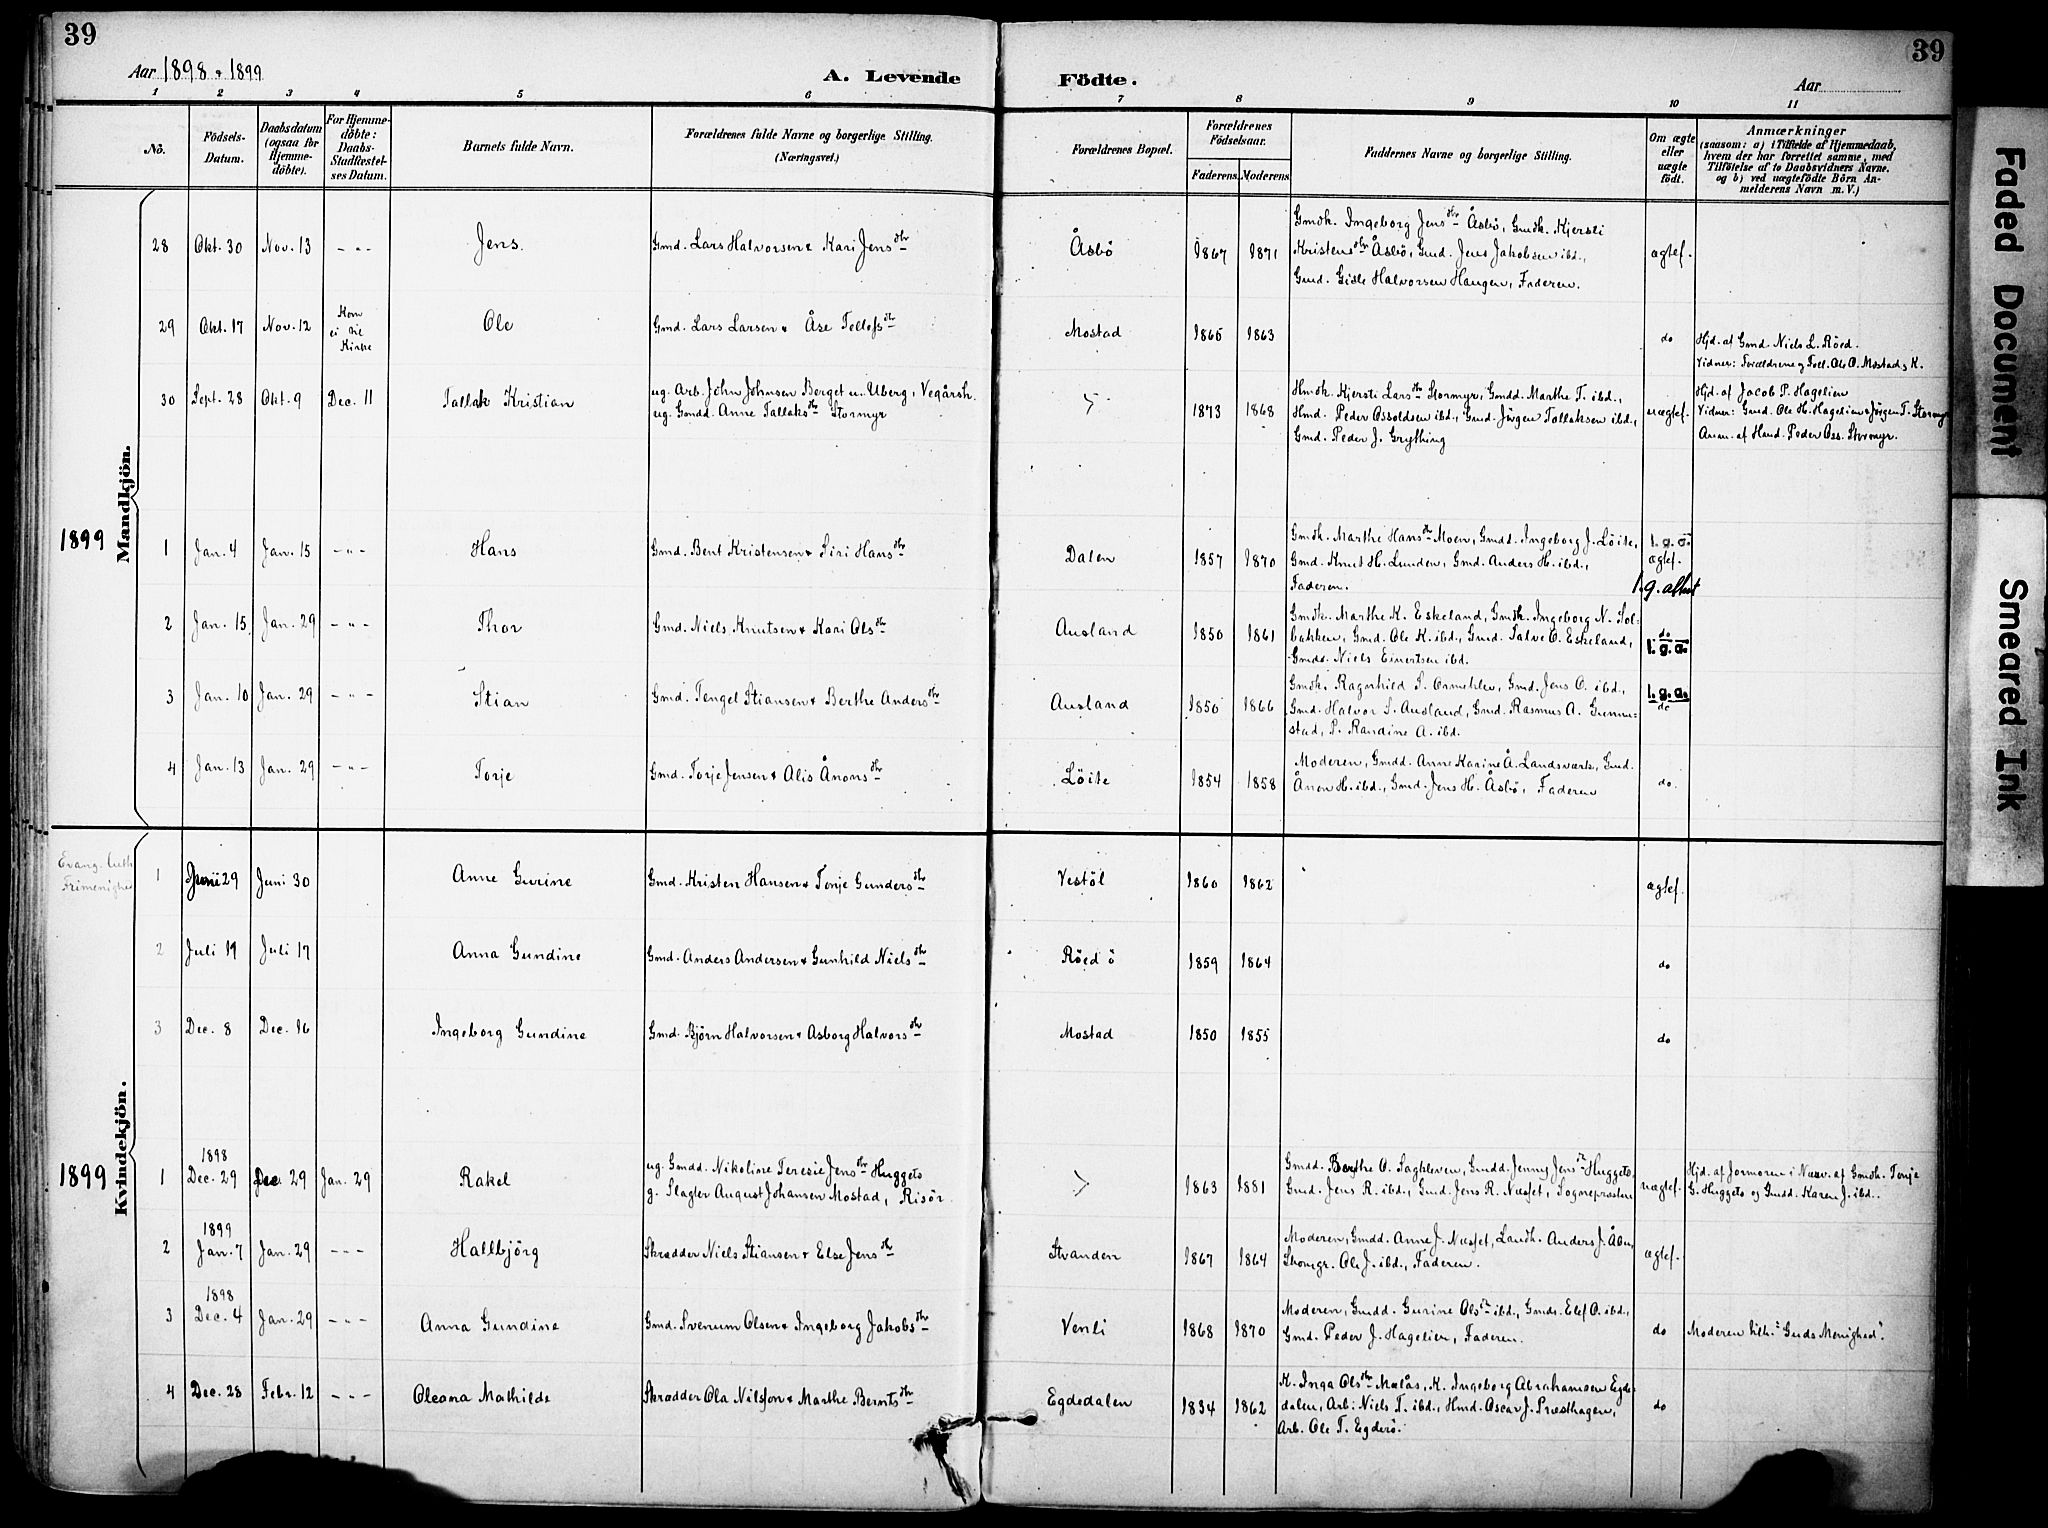 39
Aar 1898 & 1899
A. Levende Födte.
Aar
39
1 2 3 4 5 6 7 8 9 10 11
No.
Födsels-Datum.
Daabsdatum (ogsaa for Hjemme-döbte).
For Hjemme-döbte: Daabs-Stadfæstel-ses Datum.
Barnets fulde Navn.
Forældrenes fulde Navne og borgerlige Stilling. (Næringsvei.)
Forældrenes Bopæl.
Forældrenes Födselsaar.
Faderens. Moderens.
Faddernes Navne og borgerlige Stilling.
Om ægte eller uægte födt.
Anmærkninger (saasom: a) i Tilfælde af Hjemmedaab, hvem der har forrettet samme, med Tilföielse af to Daabsvidners Navne. og b) ved uægtefödte Börn An-melderens Navn m. V.)
Mandkjön.
28 Okt. 30 Nov. 13 - " - Jens. Gmd. Lars Halvorsen & Kari Jensdtr Åsbö 1867 1871 Gmdk. Ingeborg Jensdtr Åsbö, Gmdk. Kjersti
Kristensdtr Åsbö, Gmd. Jens Jakobsen ibd.,
Gmd. Gisle Halvorsen Haugen, Faderen. ægtef.
29 Okt. 17 Nov. 12 Kom ei til Kirke Ole Gmd. Lars Larsen & Åse Tellefsdtr Mostad 1865 1863 do Hjd. af Gmd. Niels L. Röed.
Vidner: Forældrene og Tell. Ols O. Mostad, K.
30 Sept. 28 Okt. 9 Dec. 11 Tallak Kristian ug. Arb. John Johnsen Berget u. Uberg, Vegårsh.
ug. Gmdd. Anne Tallaksdtr Stormyr 1873 1868 Hmdk. Kjersti Larsdtr Stormyr, Gmdd. Marthe T. ibd.,
Hmd. Peder Ossoldsen ibd., Gmd. Jörgen Tallaksen ibd.,
Gmd. Peder J. Grytting uægtef. Hjd. af Jacob P. Hagelien
Vidner: Gmd. Ole H. Hagelien & Jörgen T. Stormyr
Anm. af Hmd. Peder Oss. Stormyr.
1899
1 Jan. 4 Jan. 15 - " - Hans Gmd. Bent Kristensen & Siri Hansdtr Dalen 1857 1870 Gmdk. Marthe Hansdtr Moen, Gmdd. Ingeborg J. Löite,
Gmd. Knut H. Lunden, Gmd. Anders H. ibd.,
Faderen. I. g. a. ægtef.
I. g. attest
2 Jan. 15. Jan. 29 - " - Thor Gmd. Niels Knutsen & Kari Olsdtr Ausland 1850 1861 Gmdk. Marthe K. Eskeland, Gmdk. Ingeborg N. Sol-
bakken, Gmd. Ole K. ibd., Gmd. Salve O. Eskeland,
Gmds. Niels Einertsen ibd. do I. g. a.
3 Jan. 10 Jan. 29 - " - Stian Gmd. Tengel Stiansen & Berthe Andersdtr Ausland 1856 1866 Gmdk. Ragnhild S. Ormehlev, Gmd. Jens O. ibd.,
Gmd. Halvor S. Ausland, Gmd. Rasmus A. Gunne-
stad, P. Randine A. ibd. I. g. a. do
4 Jan. 13 Jan. 29 - " - Torje Gmd. Torje Jensen & Alis Ånonsdtr Löite 1854 1858 Moderen, Gmdd. Anne Karine Å. Landsværk, Gmd.
Ånon H. ibd., Gmd. Jens H. Åsbö, Faderen do.
Kvindekjön.
Evang. luth. Frimenighed
1 Juni 29 Juni 30 Anne Gurine Gmd. Kristen Hansen & Tonje Gundersdtr Vestöl 1860 1862 ægtef.
2 Juli 19 Juli 17 Anna Gundine Gmd. Anders Andersen & Gunhild Nielsdtr Röed ö 1859 1864 do
3 Dec. 8 Dec. 16 Ingeborg Gundine Gmd. Björn Halvorsen & Asborg Halvorsdtr Mostad 1850 1855 do
1899
1 1898 Dec. 29 Dec. 29 Jan. 29 Rakel ug. Gmdd. Nikoline Teresie Jensdtr Huggets
g. Slagter August Johansen Mostad, Risör 1863 1881 Gmdd. Berthe O. Sagkleven, Gmdd. Jenny Jensdtr Huggets,
Gmd. Jens R. ibd., Gmd. Jens R. Næsset, Sognepræsten uægtef. Hjd. af Jormoren i Nærv. af Gmdk. Tonje
G. Huggets og Gmdd. Karen J. ibd.
2 1899 Jan. 7 Jan. 29 - " - Hallbjörg Skrædder Niels Stiansen & Else Jensdtr Stranden 1867 1864 Moderen, Gmdd. Anne J. Næsset, Landh. Anders J. Åbu,
Skomgr. Ole J. ibd., Faderen. ægtef.
3 1898 Dec. 4 Jan. 29 - " - Anna Gundine Gmd. Svenum Olsen & Ingeborg Jakobsdtr Venli 1868 1870 Moderen, Gmdd. Gurine Olsdtr ibd., Gmds. Elef O. ibd.,
Gmd. Peder J. Hagelien, Faderen. do Moderen tilh. "Guds Menighed".
4 Dec. 28 Febr. 12 - " - Oleana Mathilde Skrædder Ola Nilsson & Marthe Berntsdtr Egdedalen 1834 1862 K. Inga Olsdtr Mælås, K. Ingeborg Abrahamsen Egde-
dalen, Arb. Niels T. ibd., Hmd. Oscar J. Præsthagen,
Arb. Ole T. Egderö. do
Faded Document
Smeared Ink